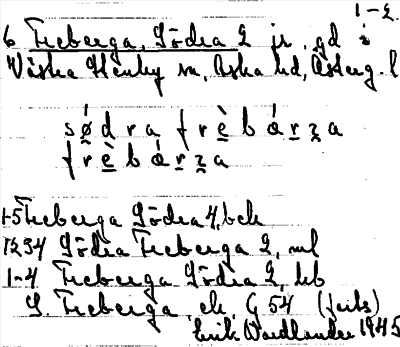 1-2.
6 Freberga, Södra 2 jr, gd i
Västra Stenby sn, Aska hd, Österg. l
södra frèbárza
frèbárza
1-5 Freberga Södra 4, bek
1234 Södra Freberga 2, ml
1-4 Freberga Södra 2, hb
S. Freberga, ek, G 54 (jaits)
Erik Wardlander 1945